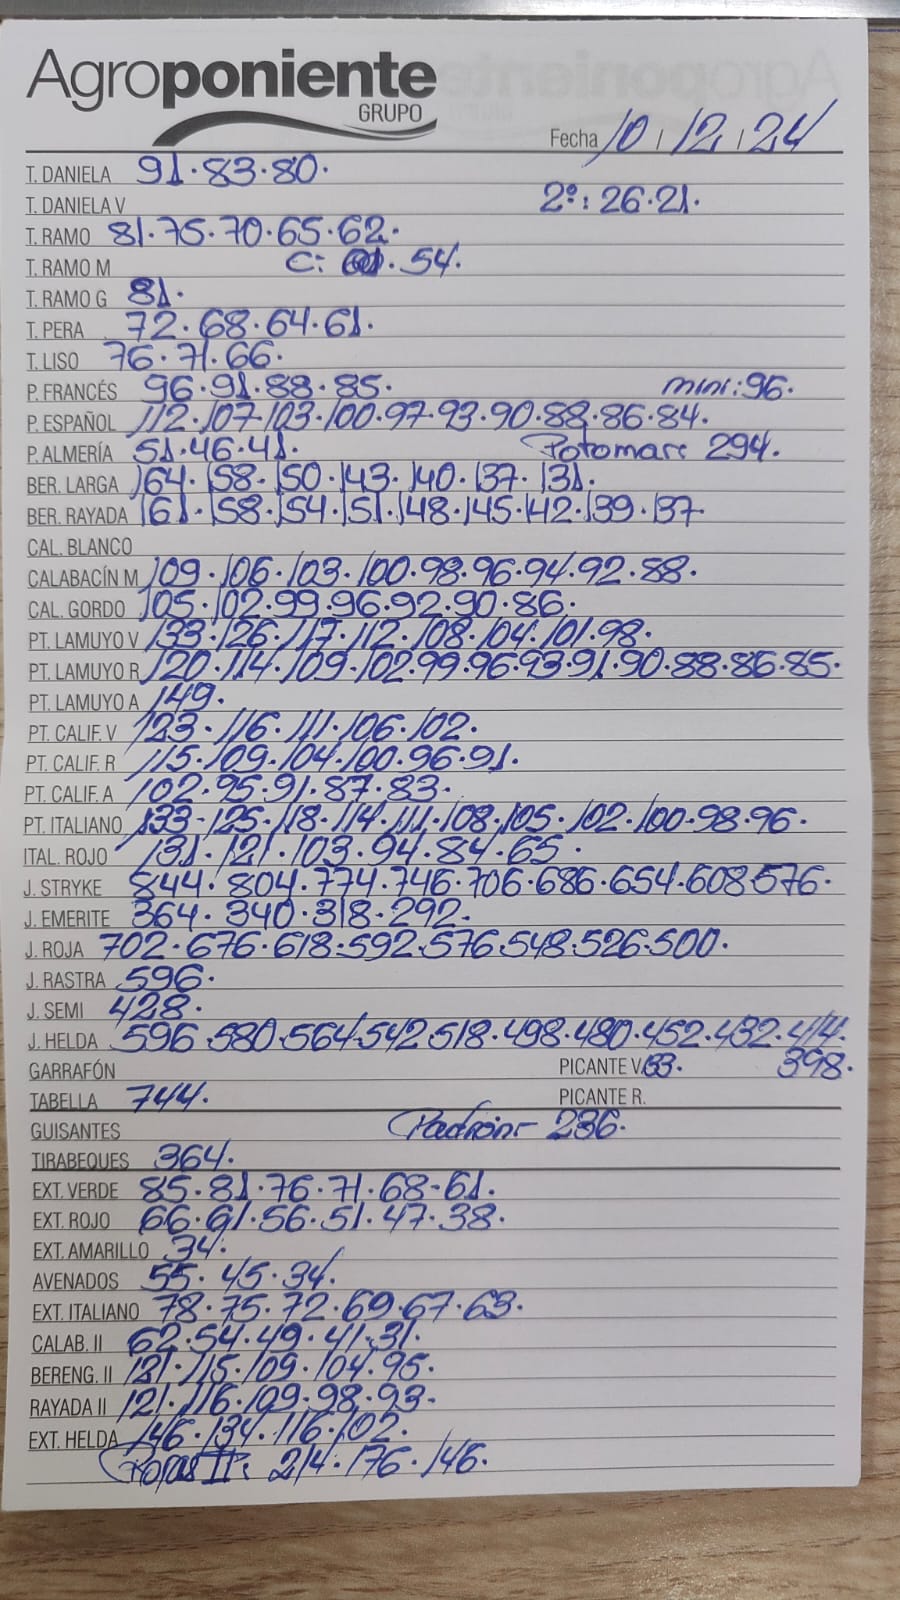 Agroponiente
GRUPO
Fecha 10 / 12 / 24
T. DANIELA 91.83.80.
T. DANIELA V 2ª: 26.21.
T. RAMO 81.75.70.65.62.
T. RAMO M C: 54.
T. RAMO G 81.
T. PERA 72.68.64.61.
T. LISO 76.71.66.
P. FRANCÉS 96.91.88.85. mini: 96.
P. ESPAÑOL 112.107.103.100.97.93.90.88.86.84.
P. ALMERÍA 51.46.41. Potomar: 294.
BER. LARGA 164.158.150.143.140.137.131.
BER. RAYADA 161.158.154.151.148.145.142.139.137
CAL. BLANCO
CALABACÍN M 109.106.103.100.98.96.94.92.88.
CAL. GORDO 105.102.99.96.92.90.86.
PT. LAMUYO V 133.126.117.112.108.104.101.98.
PT. LAMUYO R 120.114.109.102.99.96.93.91.90.88.86.85.
PT. LAMUYO A 149.
PT. CALIF. V 123.116.111.106.102.
PT. CALIF. R 115.109.104.100.96.91.
PT. CALIF. A 102.95.91.87.83.
PT. ITALIANO 133.125.118.114.111.108.105.102.100.98.96.
ITAL. ROJO 131.121.103.94.84.65.
J. STRYKE 844.804.774.746.706.686.654.608.576.
J. EMERITE 364.340.318.292.
J. ROJA 702.676.618.592.576.548.526.500.
J. RASTRA 596.
J. SEMI 428.
J. HELDA 596.580.564.542.518.498.480.452.432.414.
GARRAFÓN PICANTE V. 133. 398.
TABELLA 744. PICANTE R.
GUISANTES Padrón- 236.
TIRABEQUES 364.
EXT. VERDE 85.81.76.71.68-61.
EXT. ROJO 66.61.56.51.47.38.
EXT. AMARILLO 34.
AVENADOS 55.45.34.
EXT. ITALIANO 78.75.72.69.67.63.
CALAB. II 62.54.49.41.31.
BERENG. II 121.115.109.104.95.
RAYADA II 121.116.109.98.93.
EXT. HELDA 146.134.116.102.
II: 214.176.146.